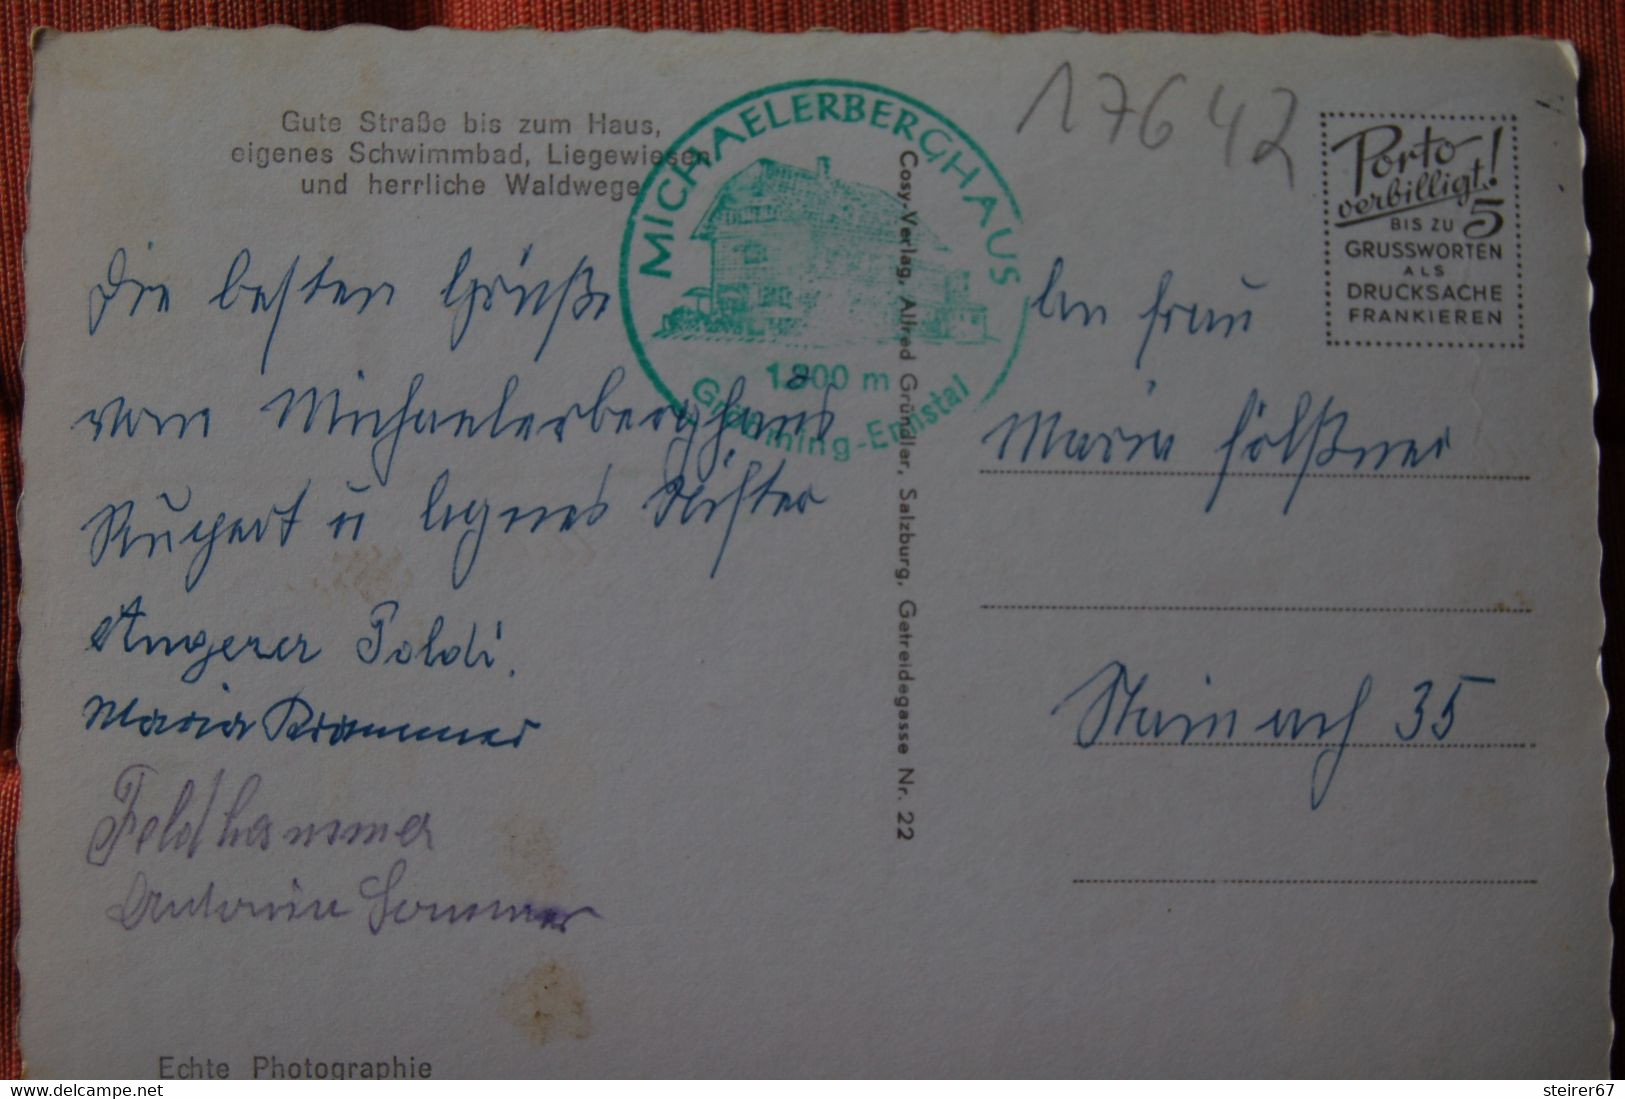 Gute Straße bis zum Haus,
eigenes Schwimmbad, Liegewiesen
und herrliche Waldwege
MICHAELERBERGHAUS
1.300 m
Gröbming-Ennstal
17642
Porto-
verbilligt!
BIS ZU 5
GRUSSWORTEN
ALS
DRUCKSACHE
FRANKIEREN
Die besten Grüße
vom Michaelerberghaus
Rupert u Agnes
Angerer Poldi.
Maria Krammer
Feldhammer
Antonia Sommer
Cosy-Verlag, Alfred Gründler, Salzburg, Getreidegasse Nr. 22
An Frau
Maria Fölßner
Stainach 35
Echte Photographie
delcampe.net
steirer67